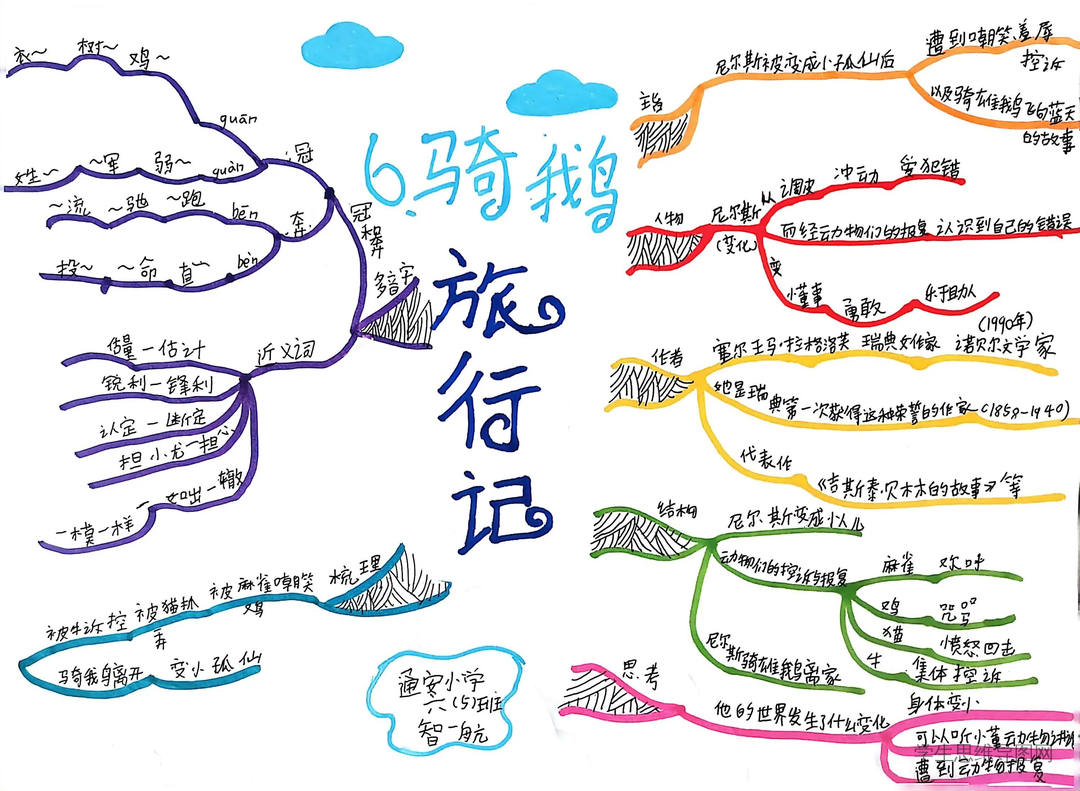 6.骑鹅
旅
行
记
多音字
冠
奔
冠
guān
衣～
树～
鸡～
guàn
姓～
～军
弱～
奔
bēn
～流
～驰
～跑
bèn
投～
～命
直～
近义词
估计
锐利—锋利
认定—断定
担
担心
如出一辙
一模一样
梳理
被麻雀嘲笑
鸡
被猫扒
弄
被牛诉控
骑我鸟离开
变小狐仙
通安小学
六(5)班
智一航
尼尔斯被变成小狐仙后
遭到嘲笑羞辱
控诉
以及骑雄鹅飞向蓝天
的故事
人物
尼尔斯
(变化)
从调皮
冲动
爱犯错
而经动物们的报复
认识到自己的错误
变
懂事
勇敢
乐于助人
作者
塞尔玛·拉格洛芙
瑞典女作家
诺贝尔文学家
(1990年)
她是瑞典第一次获得这种荣誉的作家
(1858-1940)
代表作
《吉斯泰·贝林的故事》等
结构
尼尔斯变成小人儿
动物们的控诉与报复
麻雀
欢呼
鸡
咒骂
猫
愤怒回击
牛
集体控诉
尼尔斯骑雄鹅离家
思考
他的世界发生了什么变化
身体变小
可以听小董动物讲
遭到动物报复
学生思维导图网